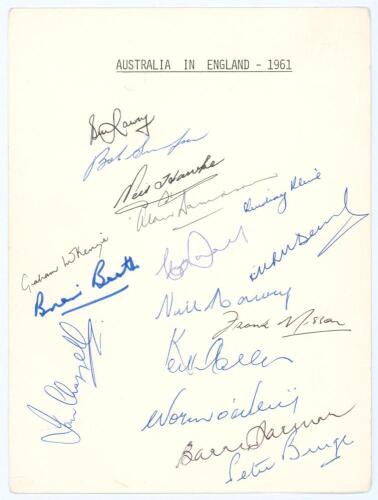 AUSTRALIA IN ENGLAND - 1961
Bill Lawry
Bob Simpson
Neil Hawke
Alan Davidson
Lindsay Kline
Graham McKenzie
Brian Booth
Neil Harvey
Frank Misson
Ian Chappell
Norm O'Neill
Barry Jarman
Peter Burge